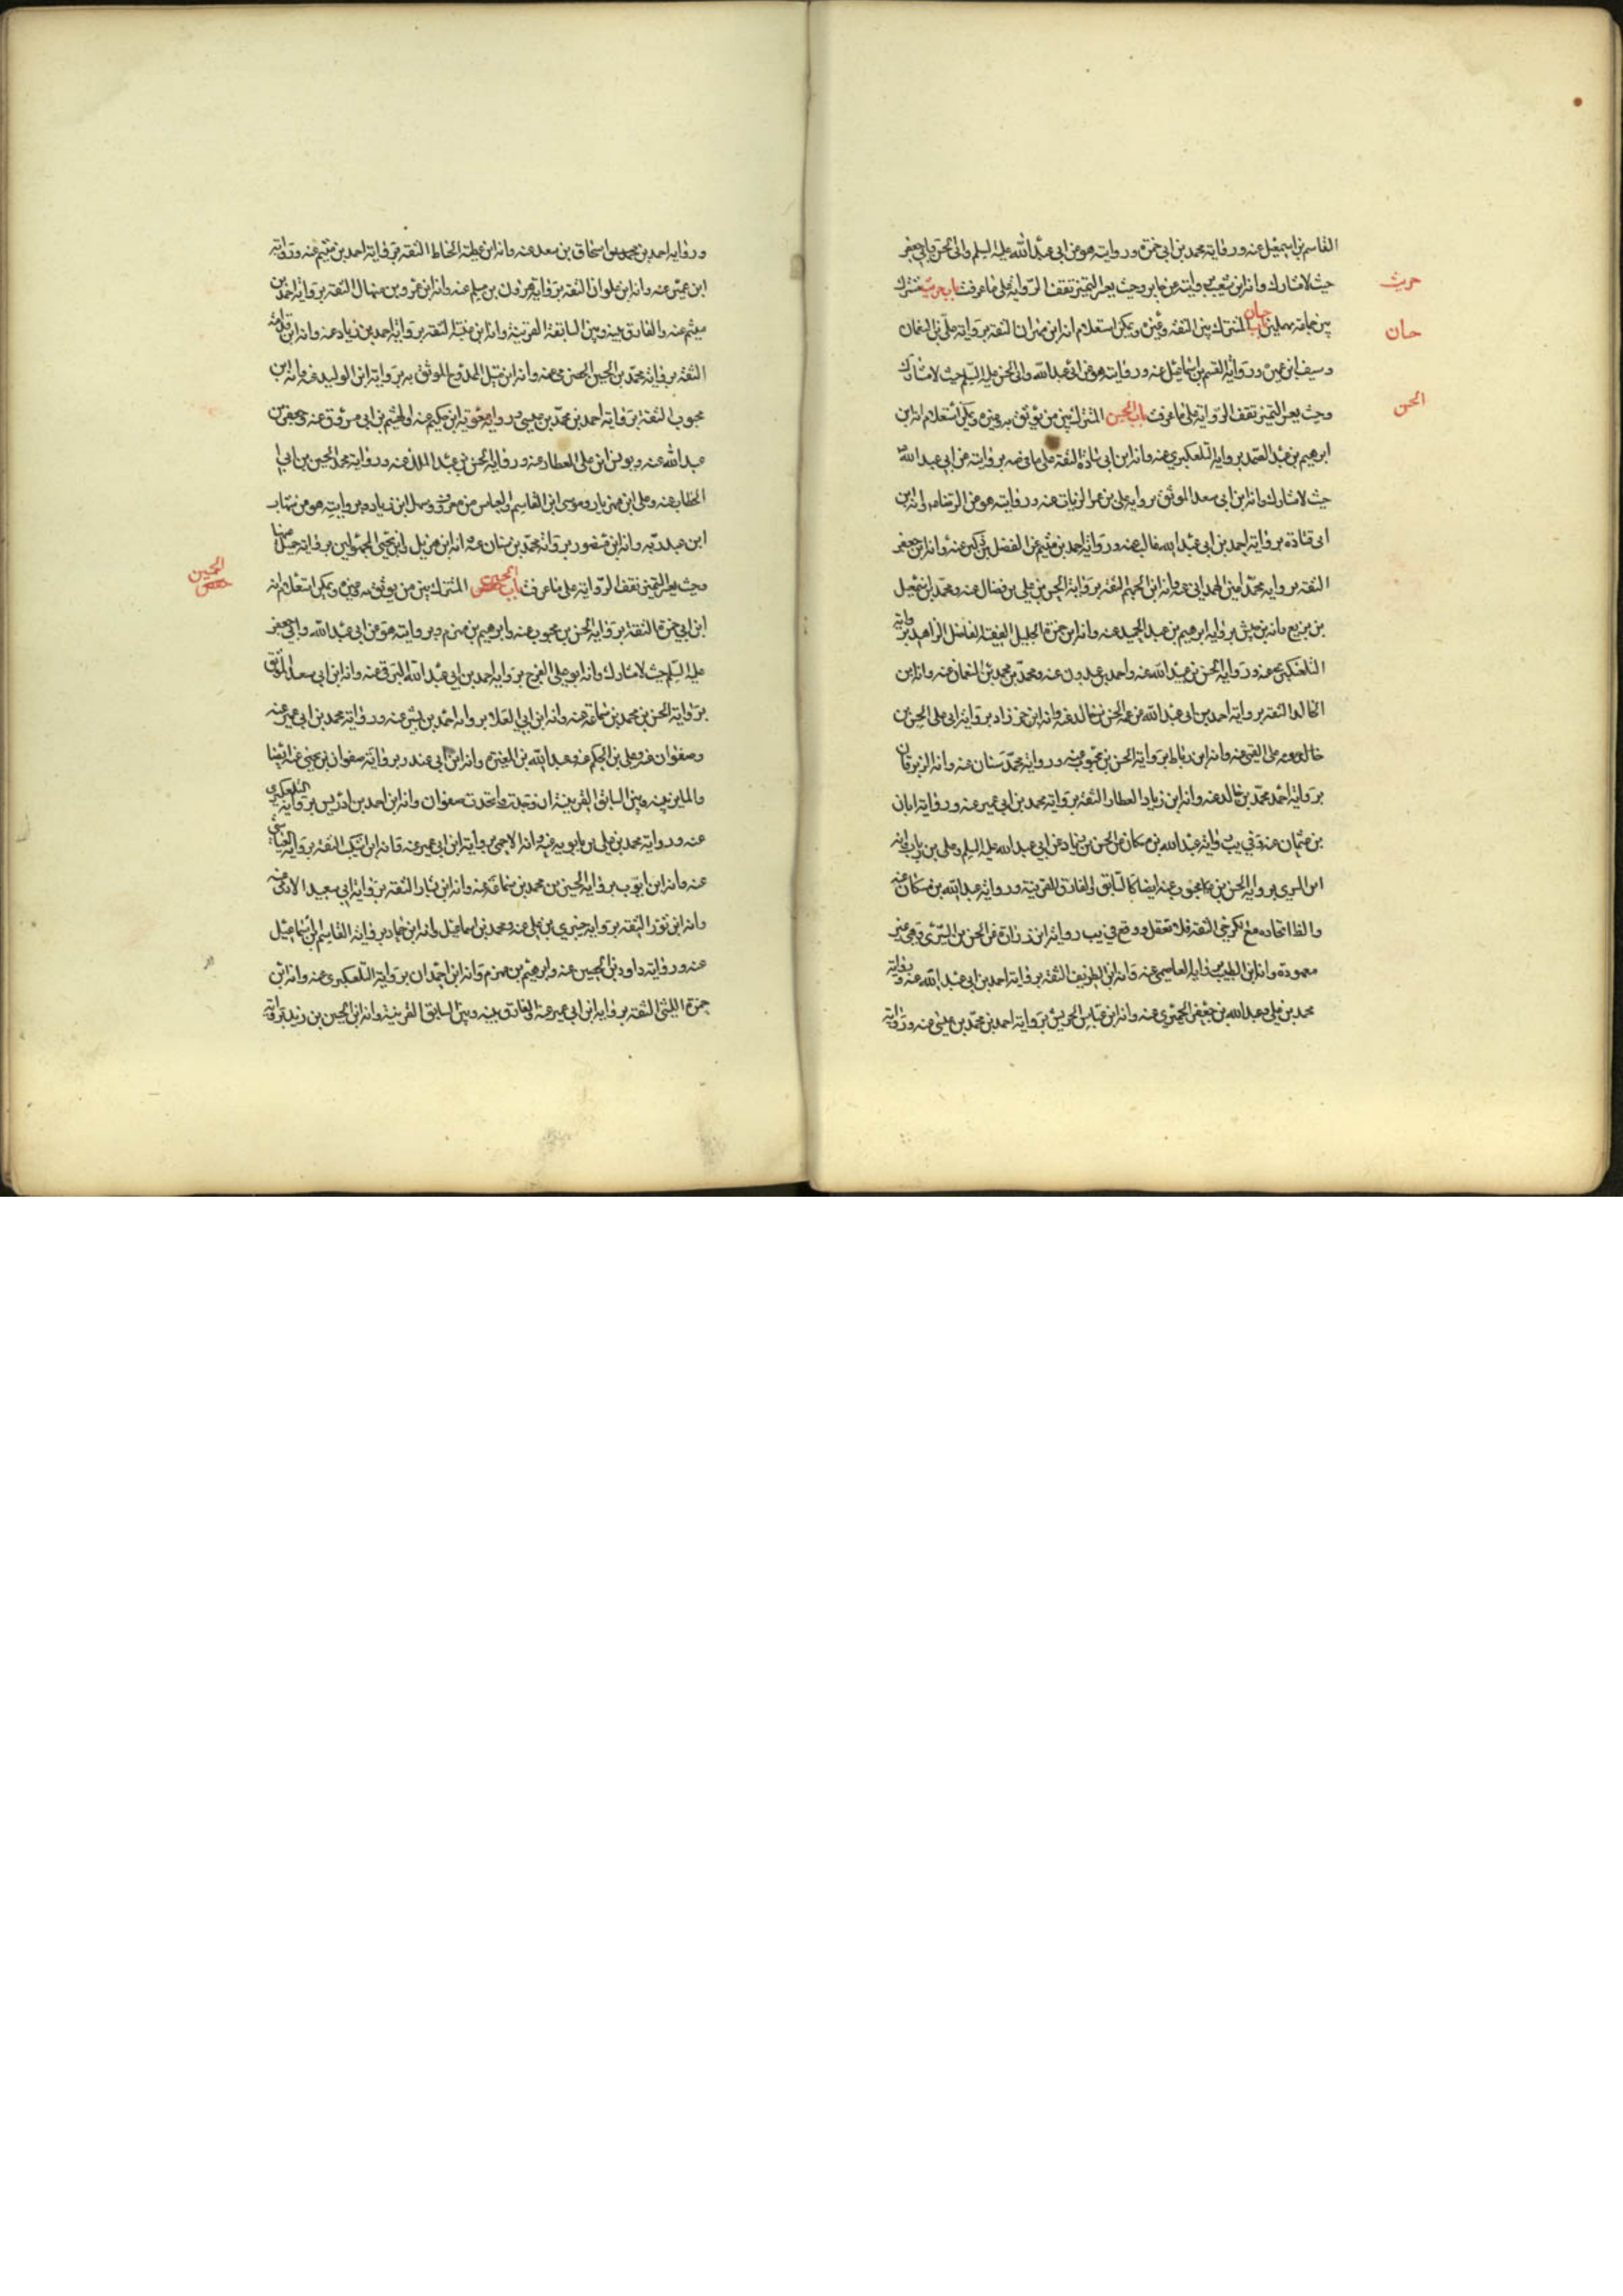 القاسم بن اسمعيل عنه ورواية محمد بن ابي حمزة وروايته هو عن ابي عبد الله عليه السلم وابي الحسن وابي جعفر
حيث لا مشارك وانه ابن شعيب وحيث يعسر التميز تقف الرواية على ما عرف باب حريث مشترك
حريث
بين جماعة مهملين باب حسان المشترك بين الثقة وغيره ويمكن استعلام انه ابن مهران الثقة برواية علي بن النعمان
حسان
وسيف ابن عميرة ورواية القسم بن اسماعيل عنه وروايته هو عن ابي عبد الله وابي الحسن عليه السلم حيث لا مشارك
وحيث يعسر التميز تقف الرواية على ما عرف باب الحسن المشترك بين من يوثق به وغيره ويمكن استعلام انه ابن
الحسن
ابرهيم بن عبد الصمد برواية التلعكبري عنه وانه ابن ابي الثقة على ما في برواية عن ابي عبد الله
حيث لا مشارك وانه ابن ابي سعد الموثق برواية علي بن عمر الزيات عنه وروايته هو عن الرضا وانه ابن
ابي قتادة برواية احمد بن ابي عبد الله عنه ورواية احمد بن ميثم عن الفضل بن دكين عنه وانه ابن جعفر
الثقة برواية محمد الهمداني عنه وانه ابن الجهم الثقة برواية الحسن بن علي بن فضال عنه ومحمد ابن اسمعيل
بن بزيع وانه بن برواية ابرهيم بن عبد الحميد عنه وانه ابن حمزة الجليل الفقيه الفاضل الزاهد برواية
التلعكبري عنه ورواية الحسن بن عبيد الله عنه واحمد بن عبدون عنه ومحمد بن محمد بن النعمان عنه وانه ابن
الخالد الثقة برواية احمد بن ابي عبد الله عن عمه الحسن بن خالد عنه وانه ابن خرزاد برواية ابي علي الحسن بن
القمي عنه وانه ابن رباط برواية الحسن بن محبوب عنه ورواية محمد سنان عنه وانه الزبرقان
برواية احمد محمد بن خالد عنه وانه ابن زياد العطار الثقة برواية محمد بن ابي عمير عنه ورواية ابان
بن عثمان عنه وفي يب رواية عبد الله بن مسكان عن الحسن بن زياد عن ابي عبد الله عليه السلم وعلى بن رئاب وانه
ابن السري برواية الحسن بن محبوب عنه ايضا كالسابق والفارق القرينة ورواية عبد الله بن مسكان عنه
والظ اتحاده مع الكرخي الثقة فلا تغفل ووقع في يب رواية ابن زرارة عن الحسن بن السري وهي غير
معهودة وانه ابن الطيب برواية العاصمي عنه وانه ابن الظريف الثقة برواية احمد بن ابي عبد الله عنه ورواية
محمد بن علي وعبد الله بن جعفر الحميري عنه وانه ابن عباس الحريش برواية احمد بن محمد بن عيسى عنه ورواية
ورواية احمد بن اسحاق بن سعد عنه وانه ابن عطية الحناط الثقة برواية احمد بن ميثم عنه ورواية
ابن عمير عنه وانه ابن علوان الثقة برواية هرون بن مسلم عنه وانه ابن عمرو بن منهال الثقة برواية احمد بن
ميثم عنه والفارق بينه وبين السابقة القرينة وانه ابن عنبسة الثقة برواية احمد بن زياد عنه وانه ابن قدامة
الثقة برواية محمد بن الحسين الحضرمي عنه وانه ابن متيل الممدوح الموثق به برواية ابن الوليد عنه وانه ابن
محبوب الثقة برواية احمد بن محمد بن عيسى ورواية معوية ابن حكيم عنه والهيثم بن ابي مسروق عنه وجعفر بن
عبد الله عنه ويونس ابن علي العطار عنه ورواية الحسن بن عبد الملك عنه ورواية محمد الحسين بن ابي
الخطاب عنه وعلى ابن مهزيار وموسى ابن القاسم والعباس بن معروف وسهل ابن زياد وبروايته هو عن شهاب
ابن عبد ربه وانه ابن منصور برواية محمد بن سنان عنه وانه ابن هزيل وابن يحيى المجهولين برواية حميد عنهما
وحيث يعسر التميز تقف الرواية على ما عرف باب الحسين المشترك بين من يوثق به وغيره ويمكن استعلام انه
الحسين
ابن ابي حمزة الثقة برواية الحسن بن محبوب عنه وابرهيم بن مهزم وبروايته هو عن ابي عبد الله وابي جعفر
عليه السلم حيث لا مشارك وانه ابو علي الفرج برواية احمد بن ابي عبد الله البرقي عنه وانه ابن ابي سعد الموثق
برواية الحسن بن محمد بن سماعة عنه وانه ابن ابي العلا برواية احمد بن بشر عنه ورواية محمد بن ابي عمير عنه
وصفوان عنه وعلى بن الحكم عنه وعبد الله بن المغيرة وانه ابن ابي غندر برواية صفوان بن يحيى عنه ايضا
والمايز بينه وبين السابق القرينة ان وجدت واتحدت صفوان وانه ابن احمد بن ادريس برواية التلعكبري
عنه ورواية محمد بن علي بن بابويه عنه وانه الاحمسي برواية ابن ابي عمير عنه وانه ابن اشكيب الثقة برواية العياشي
عنه وانه ابن ايوب برواية الحسين بن محمد بن سماعة عنه وانه ابن بشار الثقة برواية ابي سعيد الادمي عنه
وانه ابن ثور الثقة برواية خيبري بن علي عنه ومحمد بن اسماعيل وانه ابن حماد برواية القاسم ابن اسماعيل
عنه ورواية داود بن الحسين عنه وابرهيم بن مهزم وانه ابن احمدان برواية التلعكبري عنه وانه ابن
حمزة الليثي الثقة برواية ابن ابي عمير عنه والفارق بينه وبين السابق القرينة وانه ابن الحسين بن زيد برواية